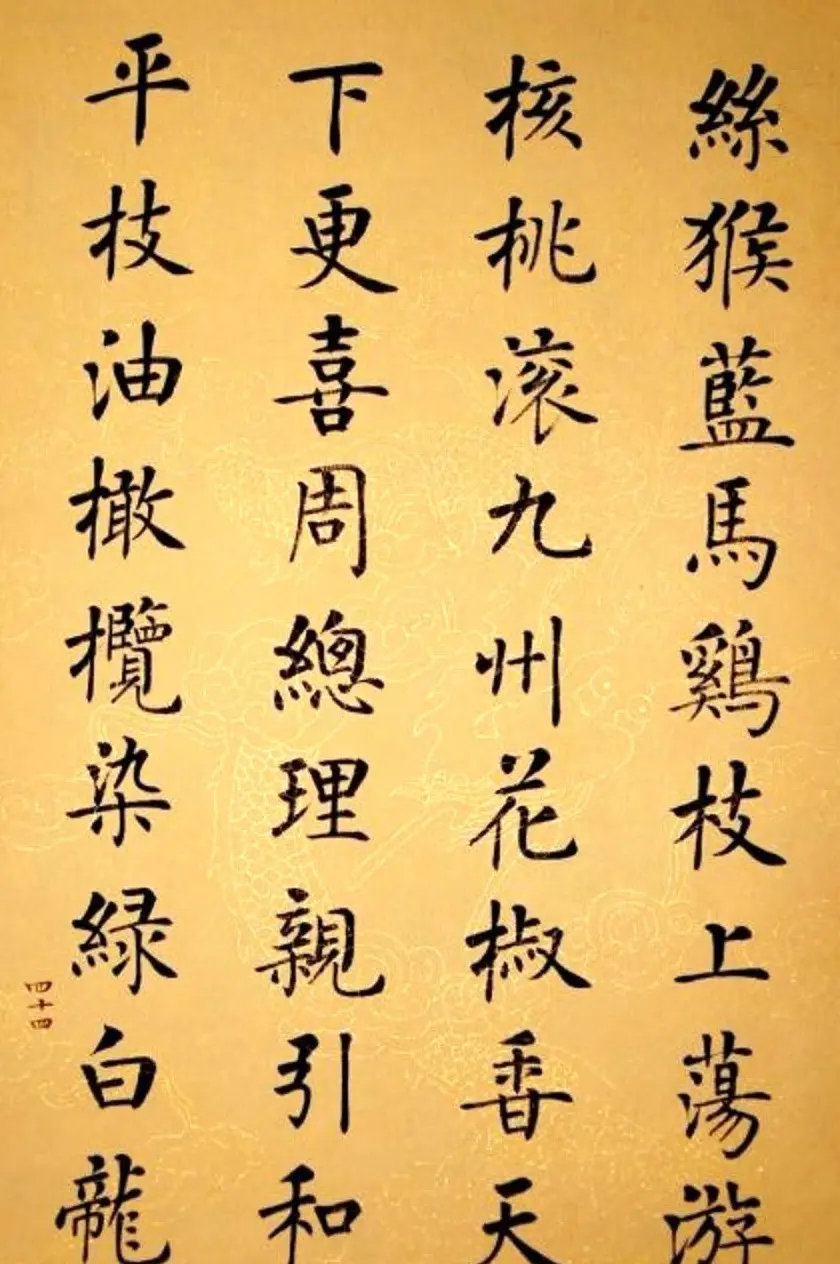 絲猴藍馬鷄枝上蕩游
核桃滚九州花椒香天
下更喜周總理親引和
平枝油橄欖染緑白龍
四十四